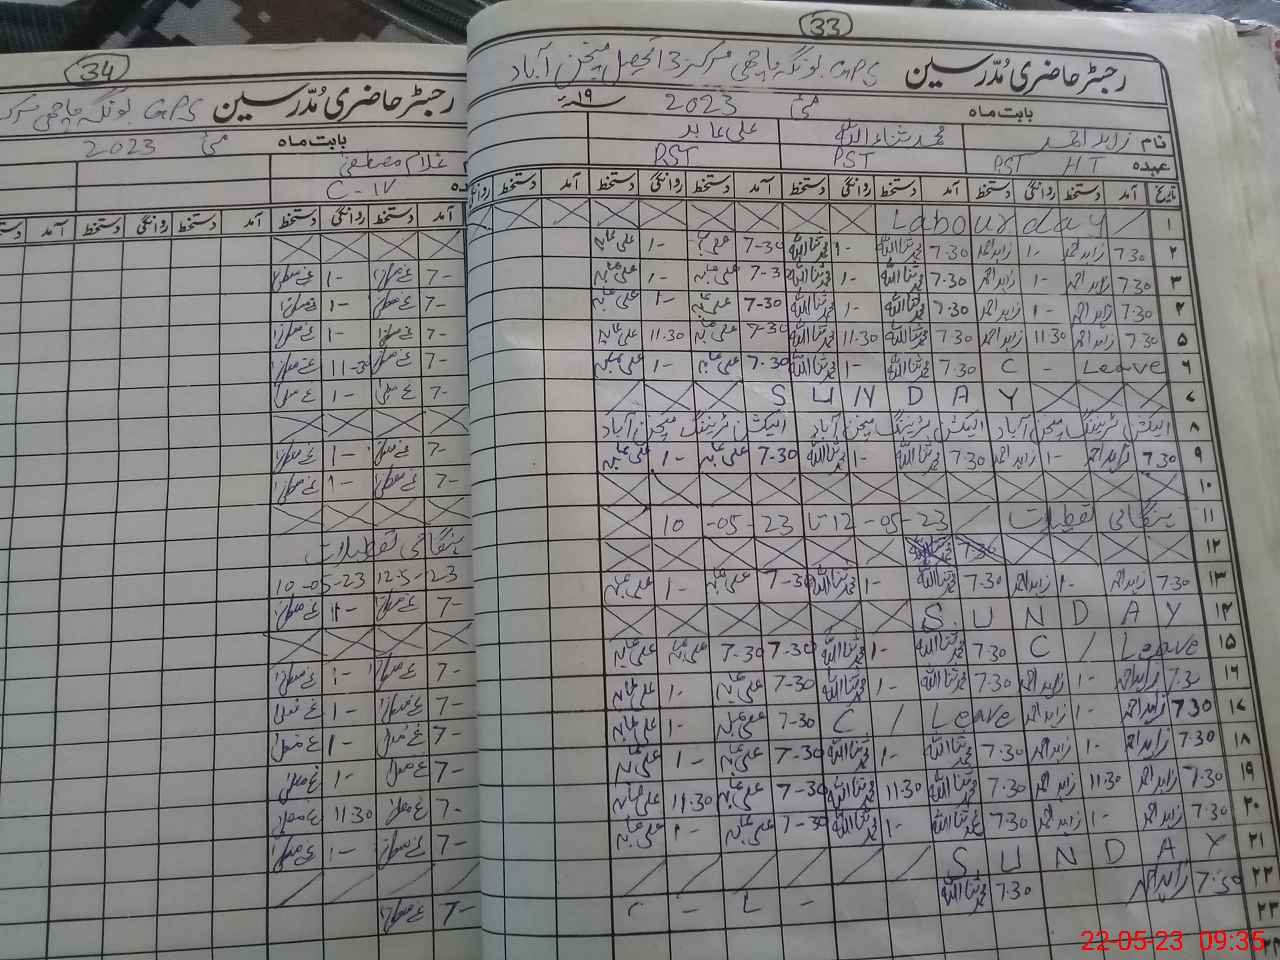 33
رجسٹر حاضری مُدّرسین GPS بونگہ ماچھی مرکز 13 تحصیل منچن آباد
بابت ماہ مئی 2023 ۱۹ء
نام زاہد احمد محمد ثناء اللہ علی عابد
عہدہ PST HT PST PST
تاریخ آمد دستخط روانگی دستخط آمد دستخط روانگی دستخط آمد دستخط روانگی دستخط آمد دستخط روانگی
۱ Labour day
۲ 7.30 زاہد احمد 1- زاہد احمد 7.30 محمد ثناء اللہ 1- محمد ثناء اللہ 7-30 علی عابد 1- علی عابد
۳ 7.30 زاہد احمد 1- زاہد احمد 7.30 محمد ثناء اللہ 1- محمد ثناء اللہ 7-3 علی عابد 1- علی عابد
۴ 7.30 زاہد احمد 1- زاہد احمد 7.30 محمد ثناء اللہ 1- محمد ثناء اللہ 7-30 علی عابد 1- علی عابد
۵ 7.30 زاہد احمد 11.30 زاہد احمد 7.30 محمد ثناء اللہ 11.30 محمد ثناء اللہ 7-30 علی عابد 11.30 علی عابد
۶ C - Leave 7.30 محمد ثناء اللہ 1- محمد ثناء اللہ 7.30 علی عابد 1- علی عابد
۷ SUNDAY
۸ الیکشن ٹریننگ منچن آباد الیکشن ٹریننگ منچن آباد الیکشن ٹریننگ منچن آباد
۹ 7.30 زاہد احمد 1- زاہد احمد 7.30 محمد ثناء اللہ 1- محمد ثناء اللہ 7-30 علی عابد 1- علی عابد
۱۰
۱۱ ہنگامی تعطیلات / 10-05-23 تا 12-05-23
۱۲ 7.30
۱۳ 7.30 زاہد احمد 1- زاہد احمد 7.30 محمد ثناء اللہ 1- محمد ثناء اللہ 7-30 علی عابد 1- علی عابد
۱۴ SUNDAY
۱۵ C / Leave 7.30 محمد ثناء اللہ 1- محمد ثناء اللہ 7-30 7-30 علی عابد علی عابد
۱۶ 7.30 زاہد احمد 1- زاہد احمد 7.30 محمد ثناء اللہ 1- محمد ثناء اللہ 7-30 علی عابد 1- علی عابد
۱۷ 7.30 زاہد احمد 1- زاہد احمد C / Leave 7-30 علی عابد 1- علی عابد
۱۸ 7.30 زاہد احمد 1- زاہد احمد 7.30 محمد ثناء اللہ 1- محمد ثناء اللہ 7-30 علی عابد 1- علی عابد
۱۹ 7.30 زاہد احمد 11.30 زاہد احمد 7.30 محمد ثناء اللہ 11.30 محمد ثناء اللہ 7-30 علی عابد 11.30 علی عابد
۲۰ 7.30 زاہد احمد 1- زاہد احمد 7.30 محمد ثناء اللہ 1- محمد ثناء اللہ 7-30 علی عابد 1- علی عابد
۲۱ SUNDAY
۲۲ 7.30 زاہد احمد 7.30 محمد ثناء اللہ - L -
۲۳
34
رجسٹر حاضری مُدّرسین GPS بونگہ ماچھی
بابت ماہ مئی 2023
غلام مصطفیٰ
C-IV
آمد دستخط روانگی دستخط آمد دستخط روانگی دستخط آمد
7- 1-
7- 1-
7- 1-
7- 11-30
7- 1-
7- 1-
7- 1-
ہنگامی تعطیلات
10-05-23 12-5-23
7- 1-
7- 1-
7- 1-
7- 1-
7- 1-
7- 11.30
7- 1-
7-
22-05-23 09:35